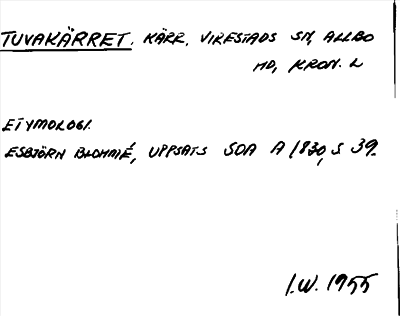 TUVAKÄRRET. KÄRR, VIRESTADS SN, ALLBO
HD, KRON. L
ETYMOLOGI.
ESBJÖRN BLOHMÉ, UPPSATS SOA A 1830, S 39.
I.W. 1955